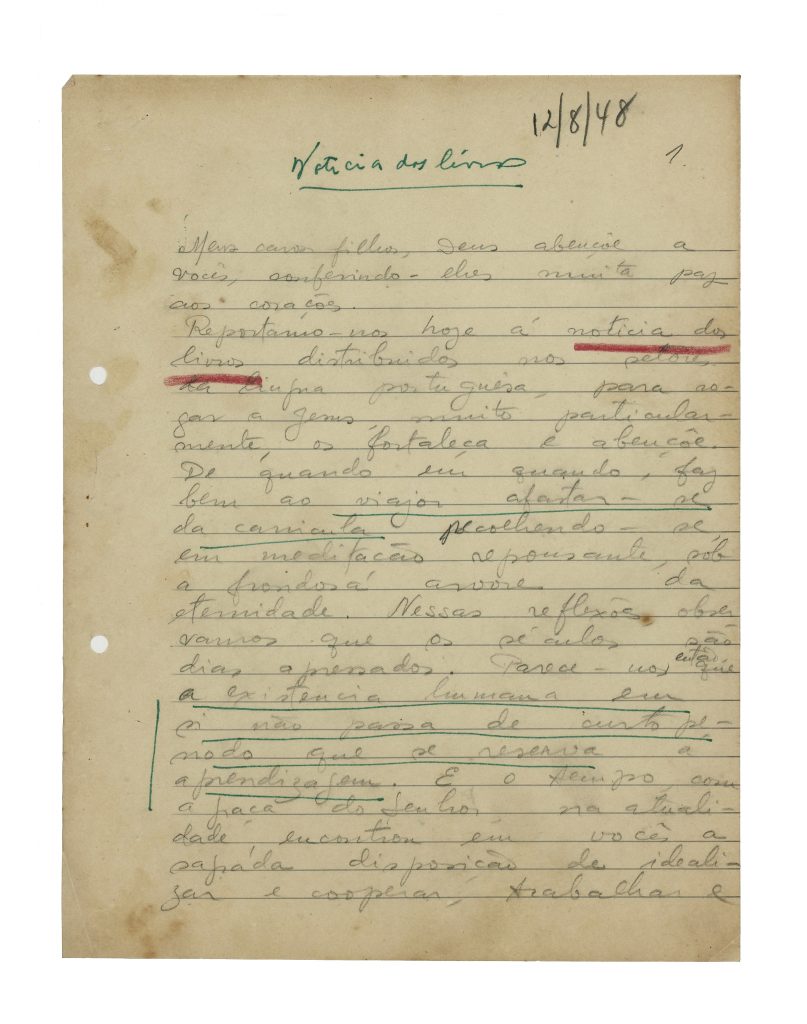 12/8/48
Noticia dos livros
1.
Meus caros filhos, Deus abençôe a
vocês, conferindo-lhes muita paz
aos corações.
Reportamo-nos hoje á noticia dos
livros distribuidos nos setores
da lingua portuguêsa, para ro-
gar a Jesus, muito particular-
mente, os fortaleca e abençôe.
De quando em quando, faz
bem ao viajor afastar-se
da canicula recolhendo-se,
em meditação repousante, sob
a frondosa arvore da
eternidade. Nessas reflexões obser
vamos que os séculos são
dias apressados. Parece-nos então que
a existencia humana em
si não passa de curto pe-
riodo que se reserva á
aprendizagem. E o tempo, com
a graça do Senhor na atuali-
dade, encontrou em vocês a
sagrada disposição de ideali-
zar e cooperar, trabalhar e